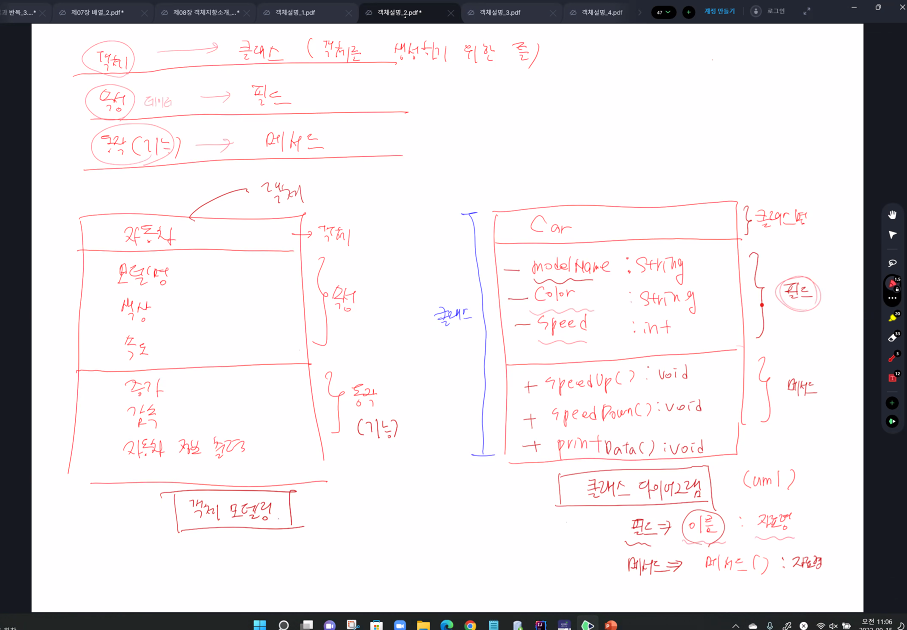 제07장 배열_2.pdf*
제08장 객체지향소개_...*
객체설명_1.pdf
객체설명_2.pdf*
객체설명_3.pdf
객체설명_4.pdf
계정 만들기
로그인
객체 → 클래스 ( 객체를 생성하기 위한 틀)
속성 → 필드
동작 (기능) → 메서드
객체
자동차 → 객체
모델명
색상
속도
속성
증가
감속
자동차 정보 출력
동작
(기능)
객체 모델링
클래스
Car
클래스명
- modelName : String
- Color : String
- Speed : int
필드
+ speedUp() : void
+ speedDown() : void
+ printData() : void
메서드
클래스 다이어그램 (uml)
필드 ⇒ 이름 : 자료형
메서드 ⇒ 메서드() : 자료형
오전 11:06